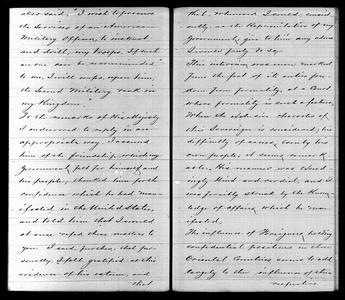 also said, "I wish to procure
the services of an American
Military Officer, to instruct
and drill, my troops. If such
an one can be recommended
to me, I will confer, upon him,
the second Military rank in
my Kingdom."
To the remarks of His Majesty
I endeavored to reply in an
appropriate way. I assured
him of the friendship, which my
Government felt for himself and
his people, thanked him for the
confidence which he had man-
ifested in the United States,
and told him that I would
at once refer these matters to
you. I said, further, that per-
sonally, I felt gratified at this
evidence of his esteem, and
that
that, whenever I could, consist-
ently, as the Representative of my
Government, give to him any advice
I would gladly do so.
This interview was one, marked
from the fact of its entire free-
dom from formality, at a Court
where formality is such a feature.
When the exclusive character of
this Sovereign is considered, his
difficulty of access, even by his
own people, it seems remark-
able. His manner was exceed-
ingly kind and cordial, and I
was forcibly struck by the know-
ledge of affairs, which he man-
ifested.
The influence of Foreigners holding
confidential positions in these
Oriental Countries seems to add
largely to the influence of their
respective